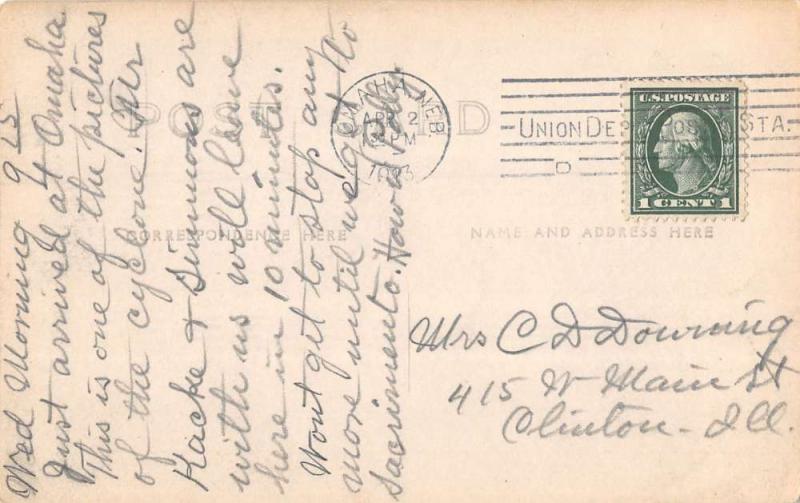 Wed Morning 9 15
Just arrived at 4 Omaha
This is one of the pictures
of the cyclone. Mr
& Simmons are
with us will leave
here in 10 minutes.
Wont get to stop any
more until we get to
Sacrimento. Howard
POST CARD
CORRESPONDENCE HERE
OMAHA, NEB
APR 2
PM
1913
UNION DEP STA.
D
U.S. POSTAGE
1 CENT 1
NAME AND ADDRESS HERE
Mrs C D Downing
415 W Main St
Clinton - Ill.